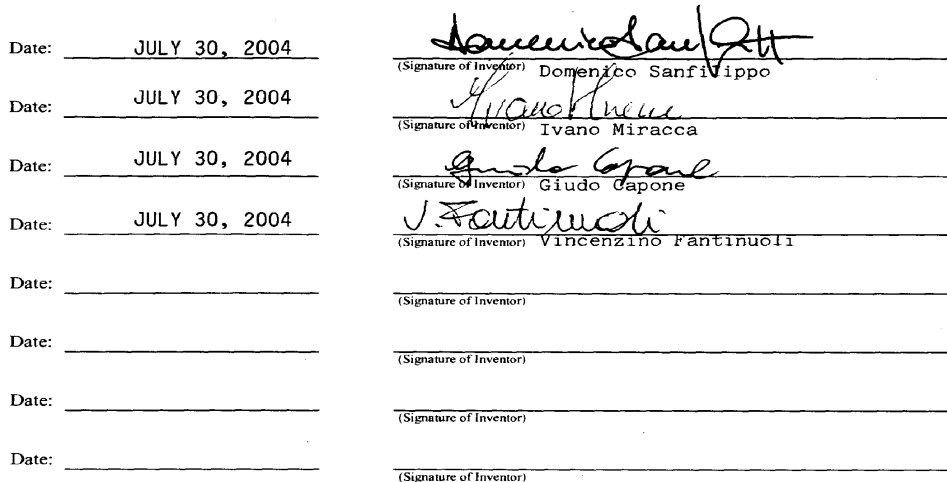 Date: JULY 30, 2004 Domenico Sanfilippo
(Signature of Inventor) Domenico Sanfilippo
Date: JULY 30, 2004 Ivano Miracca
(Signature of Inventor) Ivano Miracca
Date: JULY 30, 2004 Guido Capone
(Signature of Inventor) Giudo Capone
Date: JULY 30, 2004 V. Fantinuoli
(Signature of Inventor) Vincenzino Fantinuoli
Date:
(Signature of Inventor)
Date:
(Signature of Inventor)
Date:
(Signature of Inventor)
Date:
(Signature of Inventor)